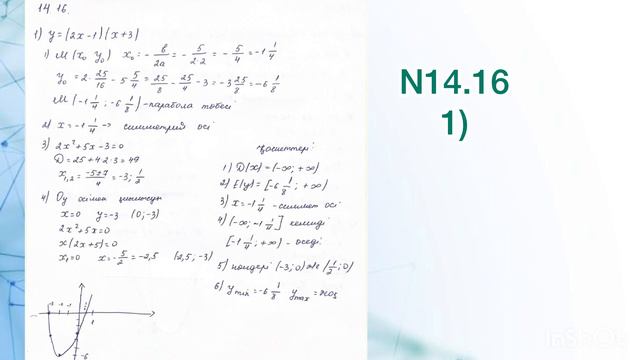 14.16.
1) y=(2x-1)(x+3)
1) M(x₀ y₀) x₀ = - b/2a = - 5/2·2 = - 5/4 = -1 1/4
y₀ = 2· 25/16 - 5 5/4 = 25/8 - 25/4 - 3 = -3 25/8 = -6 1/8
M(-1 1/4; -6 1/8) - парабола төбесі
2) x = -1 1/4 -> симметрия осі
3) 2x²+5x-3=0
D=25+4·2·3=49
x₁,₂ = -5±7/4 = -3; 1/2
4) Oy осімен қиылысуы
x=0 y=-3 (0;-3)
2x²+5x=0
x(2x+5)=0
x₁=0 x=-5/2=-2,5 (2,5;-3)
қасиеттері:
1) D(x)=(-∞;+∞)
2) E(y)=[-6 1/8; +∞)
3) x=-1 1/4 - симмет осі
4) (-∞;-1 1/4] кемиді
[-1 1/4;+∞) - өседі
5) нөлдері (-3;0) және (1/2;0)
6) y min=-6 1/8 y max=жоқ
-6
N14.16
1)
InShOt